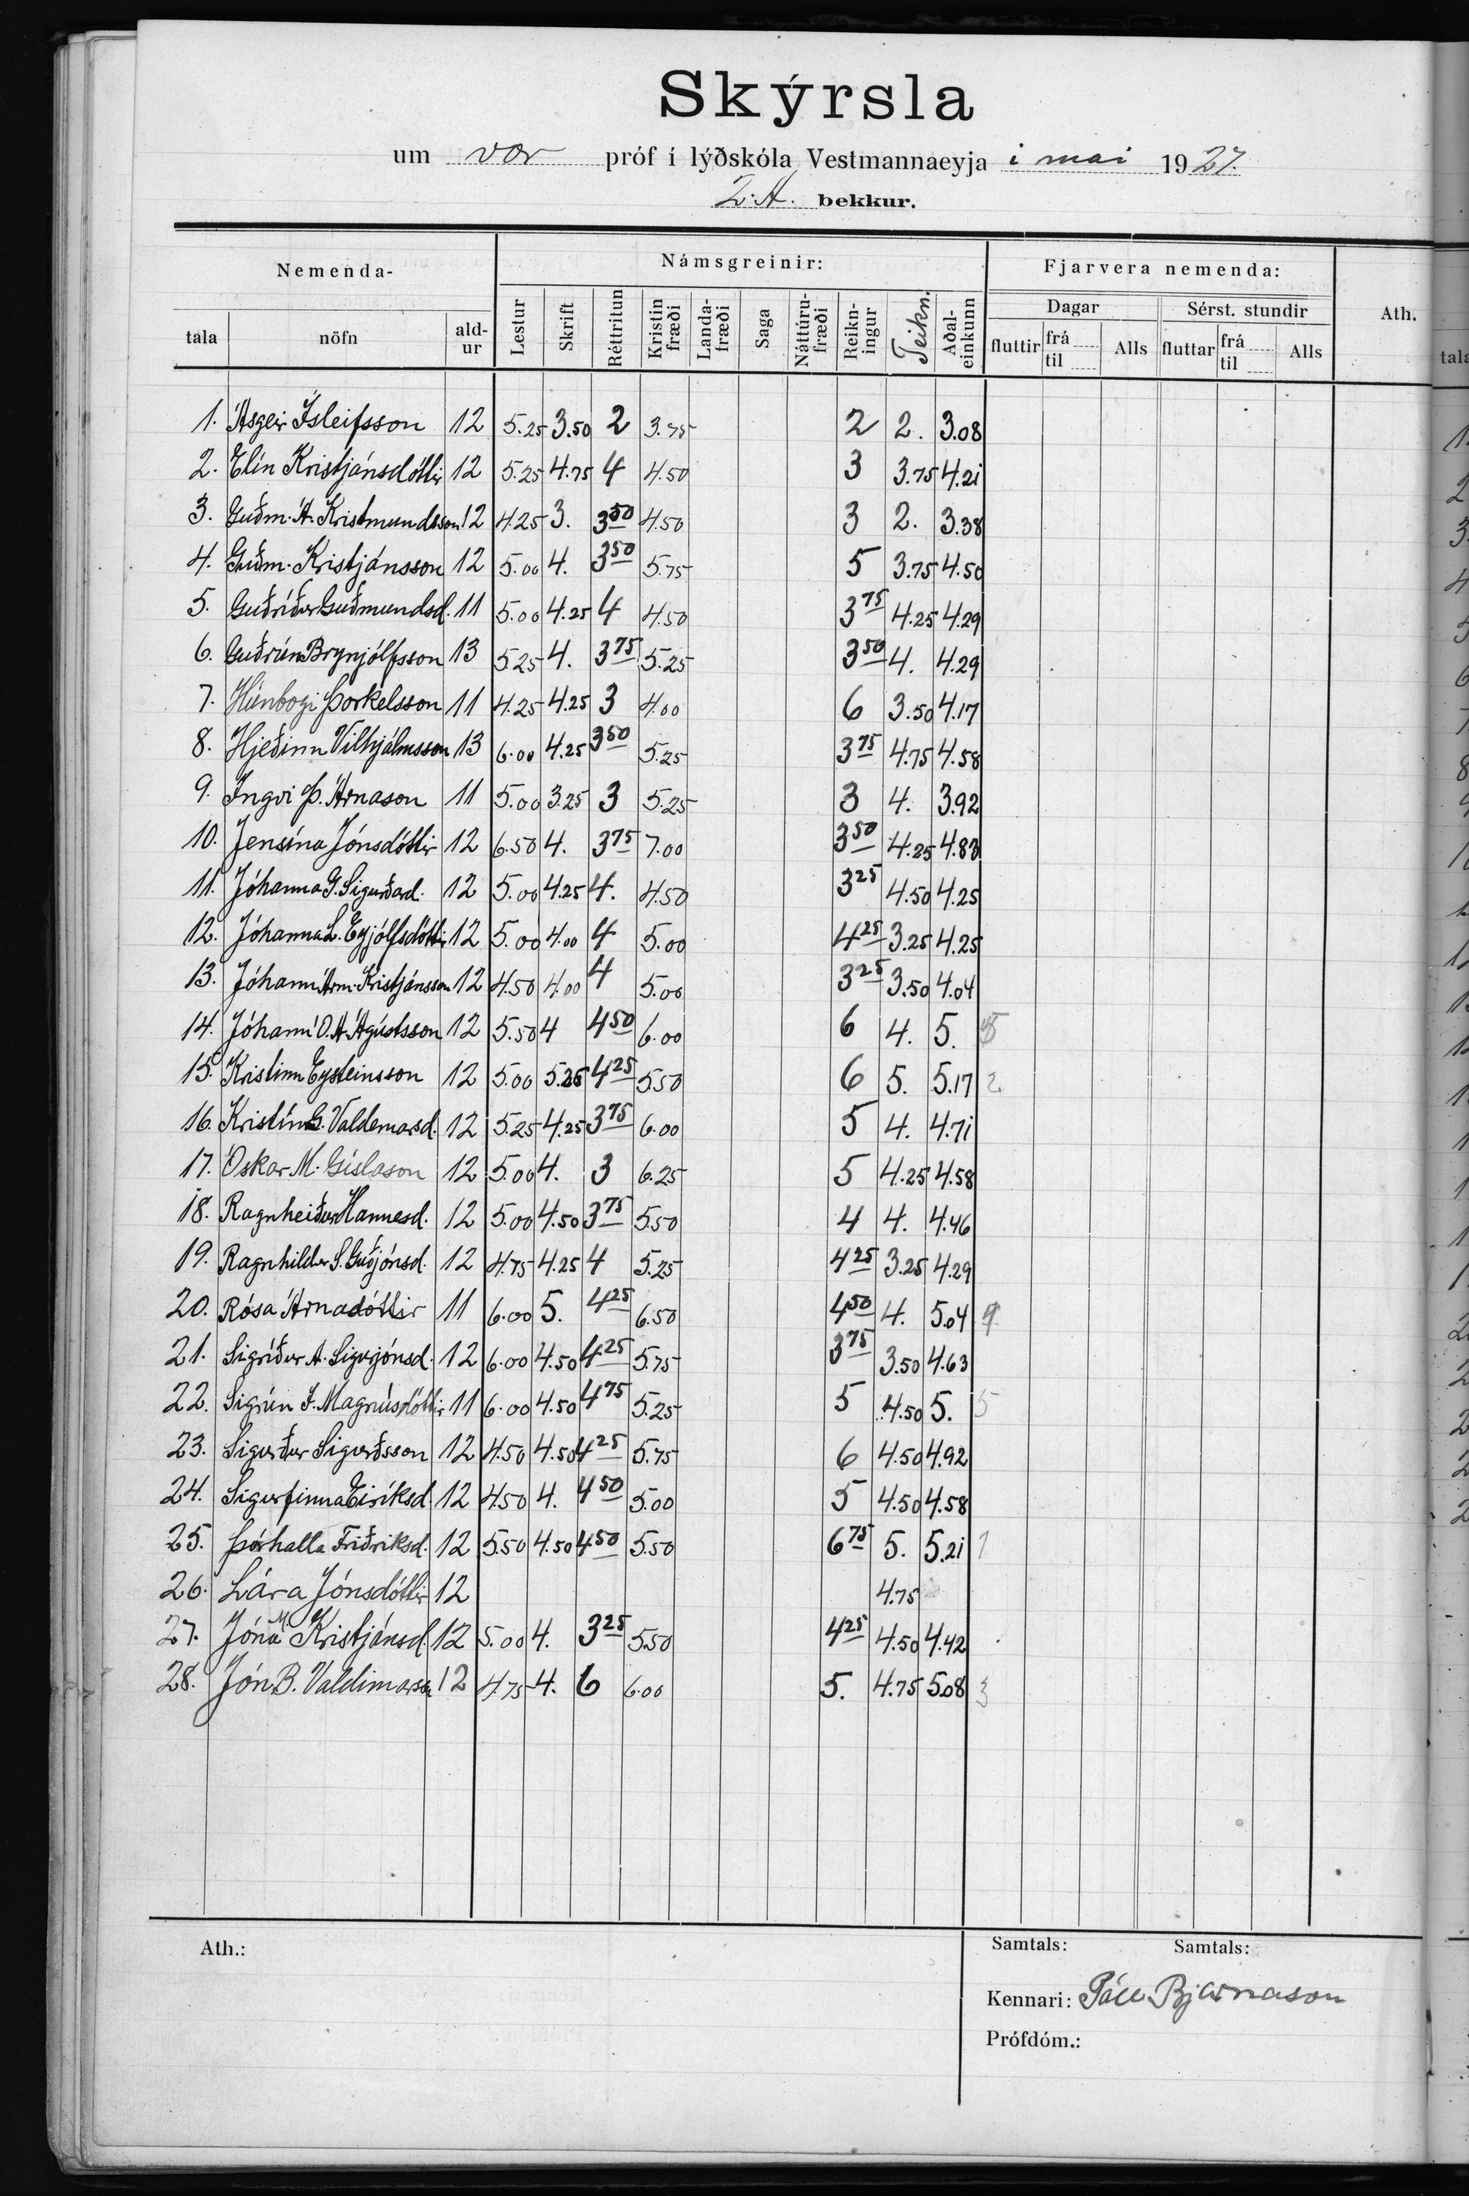 Skýrsla
um vor próf í lýðskóla Vestmannaeyja í mai 1927.
2. A. bekkur.
Nemenda- Námsgreinir: Fjarvera nemenda: Ath.
Dagar Sérst. stundir
tala nöfn ald-ur Lestur Skrift Réttritun Kristin fræði Landa-fræði Saga Náttúru-fræði Reikn-ingur Teikn. Aðal-einkunn fluttir frá til Alls fluttar frá til Alls
1. Ásgeir Ísleifsson 12 5.25 3.50 2 3.75 2 2. 3.08
2. Elín Kristjánsdóttir 12 5.25 4.75 4 4.50 3 3.75 4.21
3. Guðm. A. Kristmundsson 12 4.25 3. 3 50 4.50 3 2. 3.38
4. Guðm. Kristjánsson 12 5.00 4. 3 50 5.75 5 3.75 4.50
5. Guðríður Guðmundsd. 11 5.00 4.25 4 4.50 3 75 4.25 4.29
6. Guðrún Brynjólfsson 13 5.25 4. 3 75 5.25 3 50 4. 4.29
7. Húnbogi Þorkelsson 11 4.25 4.25 3 4.00 6 3.50 4.17
8. Hjeðinn Vilhjálmsson 13 6.00 4.25 3 50 5.25 3 75 4.75 4.58
9. Ingvi Þ. Árnason 11 5.00 3.25 3 5.25 3 4. 3.92
10. Jensína Jónsdóttir 12 6.50 4. 3 75 7.00 3 50 4.25 4.83
11. Jóhanna G. Sigurðard. 12 5.00 4.25 4. 4.50 3 25 4.50 4.25
12. Jóhanna L. Eyjólfsdóttir 12 5.00 4.00 4 5.00 4 25 3.25 4.25
13. Jóhann Arm. Kristjánsson 12 4.50 4.00 4 5.00 3 25 3.50 4.04
14. Jóhann O. A. Ágústsson 12 5.50 4 4 50 6.00 6 4. 5.
15. Kristinn Eysteinsson 12 5.00 5.25 4 25 5.50 6 5. 5.17 2
16. Kristín G. Valdemarsd. 12 5.25 4.25 3 75 6.00 5 4. 4.71
17. Óskar M. Gíslason 12 5.00 4. 3 6.25 5 4.25 4.58
18. Ragnheiður Hannesd. 12 5.00 4.50 3 75 5.50 4 4. 4.46
19. Ragnhildur S. Guðjónsd. 12 4.75 4.25 4 5.25 4 25 3.25 4.29
20. Rósa Árnadóttir 11 6.00 5. 4 25 6.50 4 50 4. 5.04
21. Sigríður A. Sigurjónsd. 12 6.00 4.50 4 25 5.75 3 75 3.50 4.63
22. Sigrún I. Magnúsdóttir 11 6.00 4.50 4 75 5.25 5 4.50 5. 5
23. Sigurður Sigurðsson 12 4.50 4.50 4 25 5.75 6 4.50 4.92
24. Sigurfinna Eiríksd. 12 4.50 4. 4 50 5.00 5 4.50 4.58
25. Þórhalla Friðriksd. 12 5.50 4.50 4 50 5.50 6 75 5. 5.21 1
26. Lára Jónsdóttir 12 4.75
27. Jóna M. Kristjánsd. 12 5.00 4. 3 25 5.50 4 25 4.50 4.42
28. Jón B. Valdimarss. 12 4.75 4. 6 6.00 5. 4.75 5.08 3
Ath.: Samtals: Samtals:
Kennari: Páll Bjarnason
Prófdóm.: